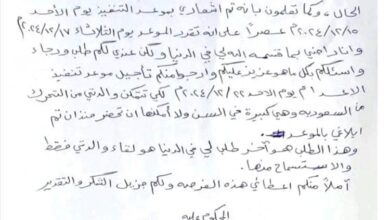 الحال، وكما تعلمون بانه تم اشعاري بموعد التنفيذ يوم الأحد
٢٠٢٤/١٢/١٥م عصراً على انه تقرر الموعد يوم الثلاثاء ٢٠٢٤/١٢/١٧
وانا راضي بما قسمه الله لي في الدنيا ولكن عندي لكم طلب ورجاء
واسئلكم بكل ما هو عزيز عليكم وارجوا منكم تأجيل موعد تنفيذ
الاعدام يوم الاحد ٢٠٢٤/١٢/٢٢م لكي تتمكن والدتي من التحرك
من السعوديه وهي كبيرة في السن ولا أمكنها ان تحضر منذ ان تم
ابلاغي بالموعد
وهذا الطلب هو آخر طلب لي في الدنيا هو لقاء والدتي فقط
والاستسماح منها.
آملاً منكم اعطائي هذه الفرصه ولكم جزيل الشكر والتقدير
المحكوم عليه